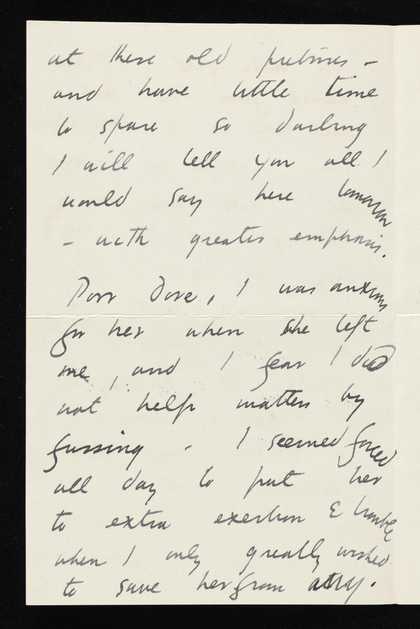 at these old pictures –
and have little time
to spare so darling
I will tell you all I
would say here tomorrow
– with greater emphasis.
Poor Dove, I was anxious
for her when she left
me, and I fear I did
not help matters by
fussing – I seemed forced
all day to put her
to extra exertion & trouble
when I only greatly wished
to save her from any.